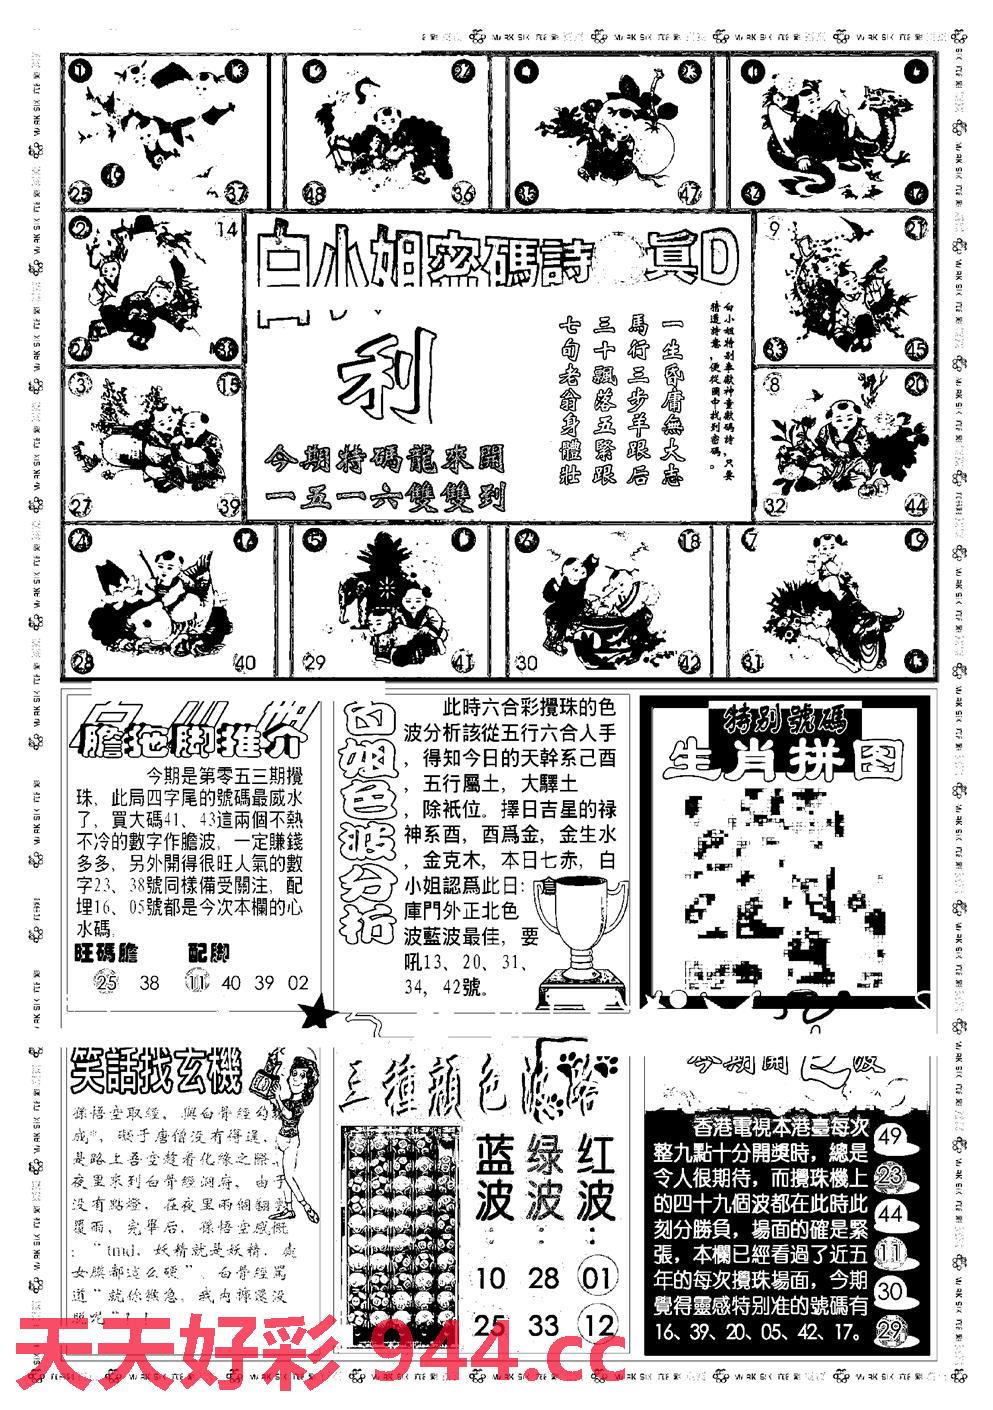 25
37
48
36
47
2
14
白小姐密碼詩
眞D
9
21
45
利
白小姐特别奉獻神童數碼詩，只要
猜透詩意，便從圖中找到密碼。
一生昏庸無大志
馬行三步羊跟后
三十飄落五緊跟
七旬老翁身體壯
今期特碼龍來開
一五一六雙雙到
3
15
27
39
8
20
32
44
28
40
5
29
41
18
30
42
7
19
31
43
膽拖脚推介
今期是第零五三期攪
珠，此局四字尾的號碼最威水
了，買大碼41、43這兩個不熱
不冷的數字作膽波，一定賺錢
多多，另外開得很旺人氣的數
字23、38號同樣備受關注，配
埋16、05號都是今次本欄的心
水碼。
旺碼膽 配脚
25 38 11 40 39 02
白姐色波分析
此時六合彩攪珠的色
波分析該從五行六合人手
，得知今日的天幹系己酉
，五行屬土，大驛土
，除衹位。擇日吉星的禄
神系酉，酉爲金，金生水
，金克木，本日七赤，白
小姐認爲此日：
庫門外正北色
波藍波最佳，要
吼13、20、31、
34，42號。
特别號碼
生肖拼图
笑話找玄機
孫悟空取經，與白骨經勾
成*，礙于唐僧没有得逞，
是路上吾空趁着化緣之際，
夜里來到白骨經洞府，由于
没有點燈，在夜里兩個翻雲
覆雨，完畢后，孫悟空感慨
：“tmd，妖精就是妖精，處
女膜都這么硬”，白骨經罵
道“就你猴急，我内褲還没
脱呢”！！
三種顔色波路
蓝波：
绿波：
红波：
10 28 01
25 33 12
今期開色波
香港電視本港臺每次
整九點十分開獎時，總是
令人很期待，而攪珠機上
的四十九個波都在此時此
刻分勝負，場面的確是緊
張，本欄已經看過了近五
年的每次攪珠場面，今期
覺得靈感特别准的號碼有
16、39、20、05、42、17。
49
23
44
11
30
29
天天好彩 944.cc